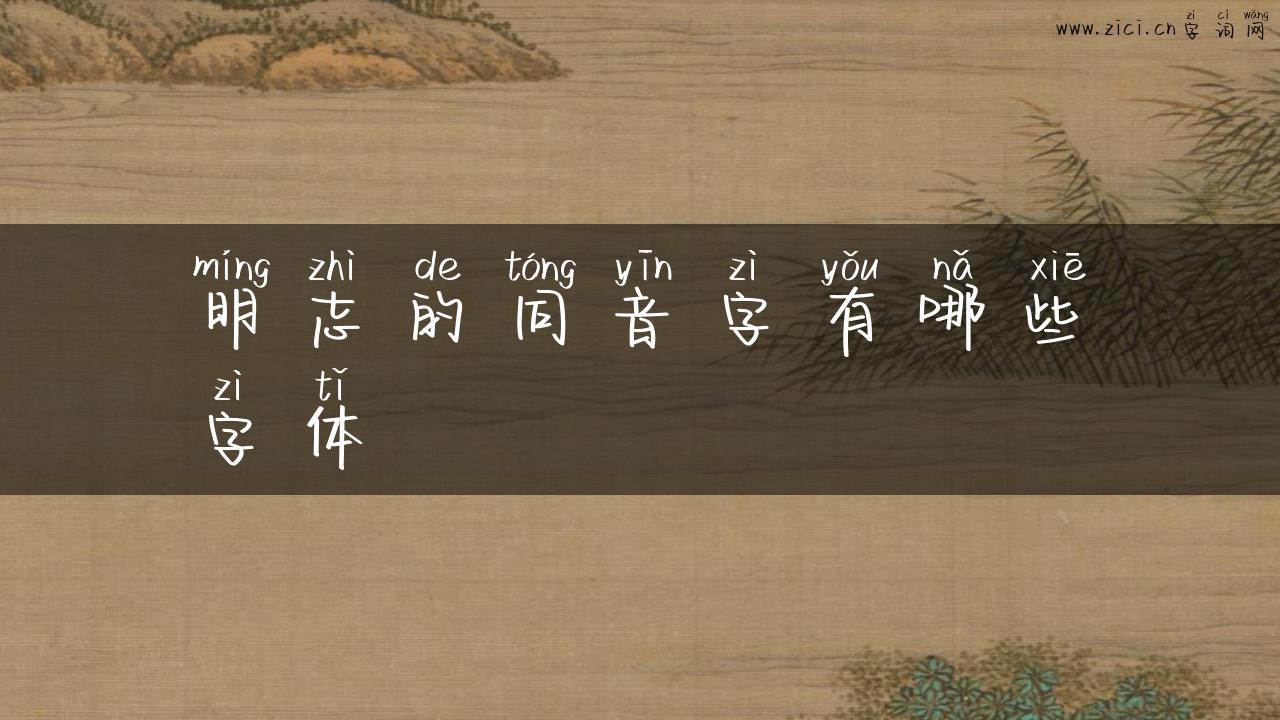 zì cí wǎng
www.zici.cn 字词网
míng zhì de tóng yīn zì yǒu nǎ xiē
明志的同音字有哪些
zì tǐ
字体